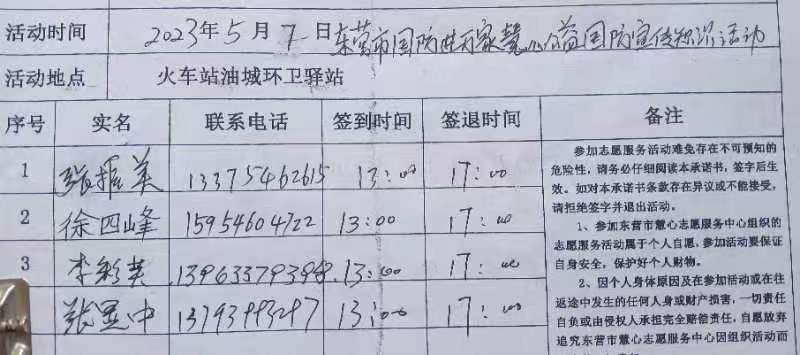 活动时间 2023年5月7日东营市国防进万家慧心公益国防宣传知识活动
活动地点 火车站油城环卫驿站
序号 实名 联系电话 签到时间 签退时间 备注
1 张振美 13375462615 13:00 17:00
2 徐四峰 15954604722 13:00 17:00
3 李彩英 13:00 17:00
13:00 17:00
参加志愿服务活动难免存在不可预知的
危险性，请务必仔细阅读本承诺书，签字后生
效。如对本承诺书条款存在异议或不能接受，
请拒绝签字并退出活动。
1、参加东营市慧心志愿服务中心组织的
志愿服务活动属于个人自愿，参加活动要保证
自身安全，保护好个人财物。
2、因个人身体原因及在参加活动或在往
返途中发生的任何人身或财产损害，一切责任
自负或由侵权人承担完全赔偿责任，自愿放弃
追究东营市慧心志愿服务中心因组织活动而